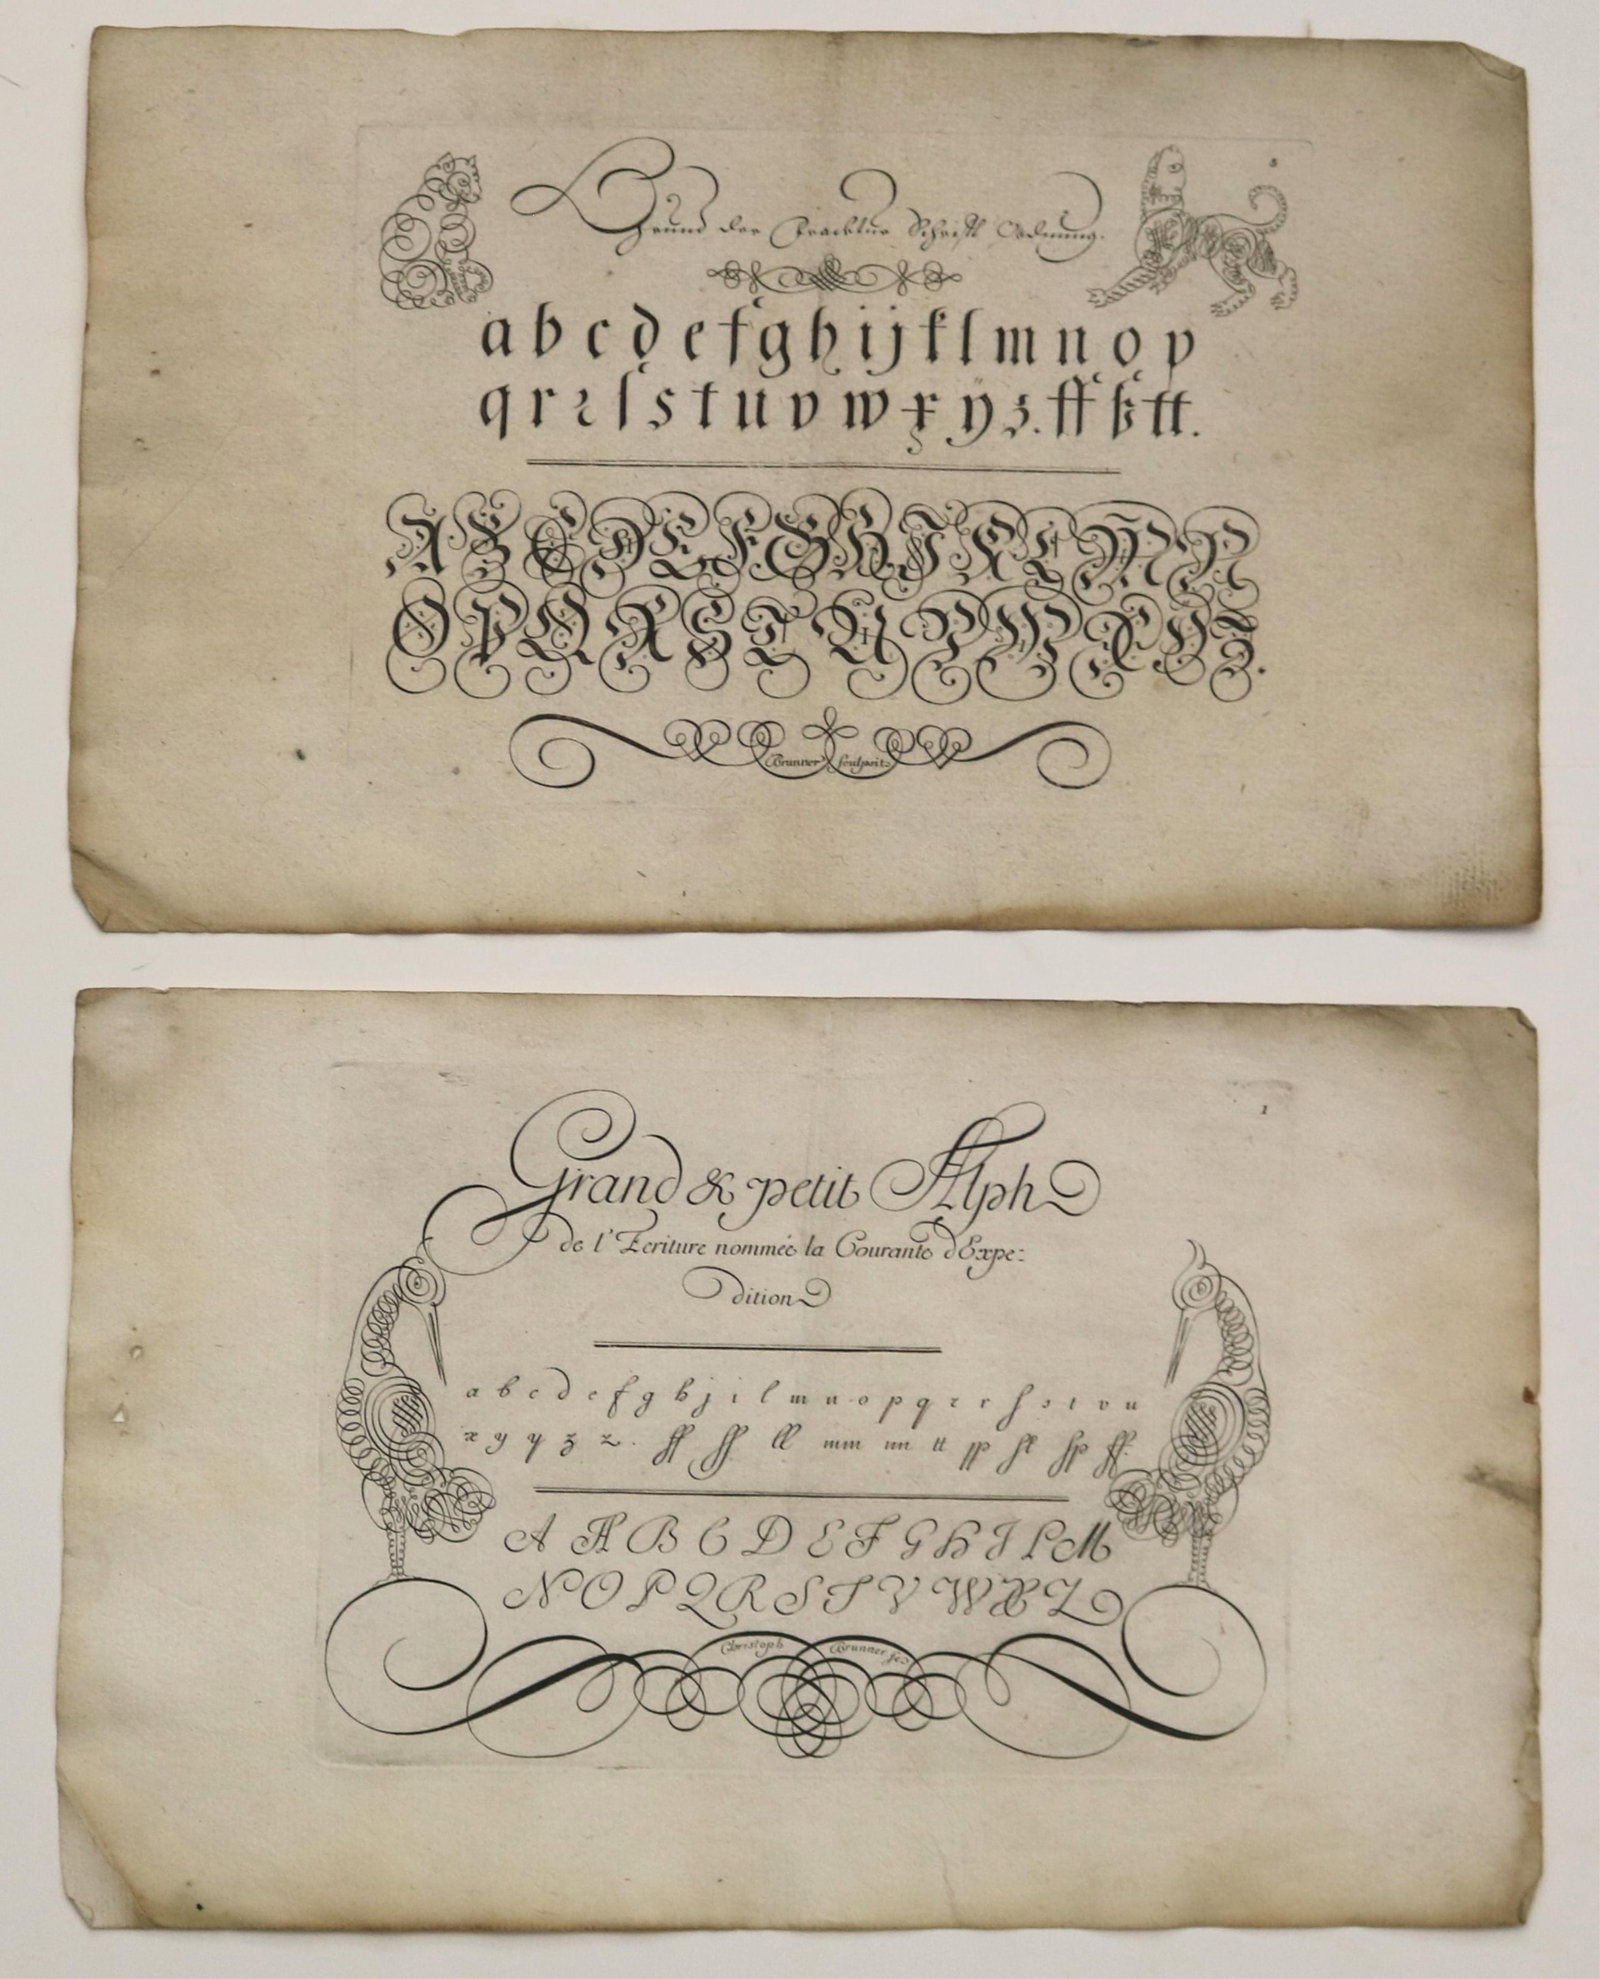 8
Grund der Fracktur Schrifft Ordnung.
a b c d e f g h i j k l m n o p
q r ꝛ ſ s t u v w x y z. ff ß tt.
A B C D E F G H I K L M N
O P Q R S T U V W X Y Z.
Brunner sculpsit
1
Grand & petit Alph
de l'Ecriture nommée la Courante d'Expe:
dition
a b c d e f g h j i l m n o p q r r ſ s t v u
x y y z z. ff ſſ ll mm nn tt pp ſt ſp ff.
A A B C D E F G H I L M
N O P Q R S T V W X Z
Christoph Brunner fec